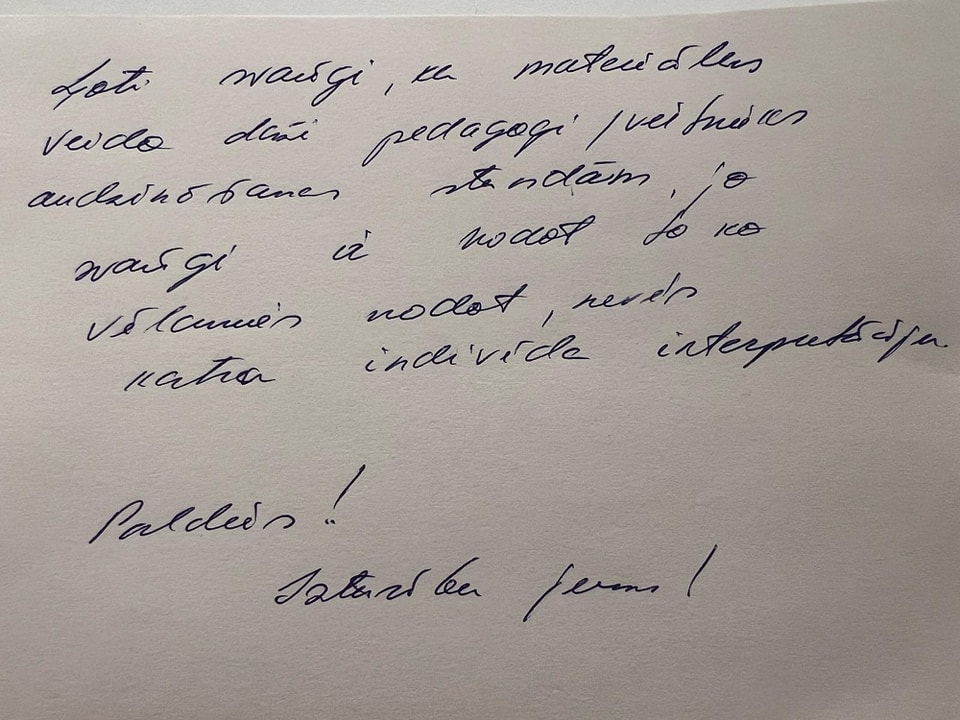 Ļoti svarīgi, ka materiālus
veido daži pedagogi / vēstnieks
audzināšanas stundām, jo
svarīgi ir nodot to ko
vēlamies nodot, nevis
katra indivīda interpretāciju.
Paldies!
Izturību jums!